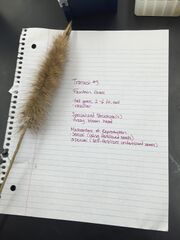 Transect #3
Fountain Grass
tall grass, 2-5 ft. tall
vascular
Specialized Structure(s)
Fuzzy bloom head
Mechanisms of Reproduction
Sexual (using fertilized seeds)
asexual (self-fertilizes underground stems)